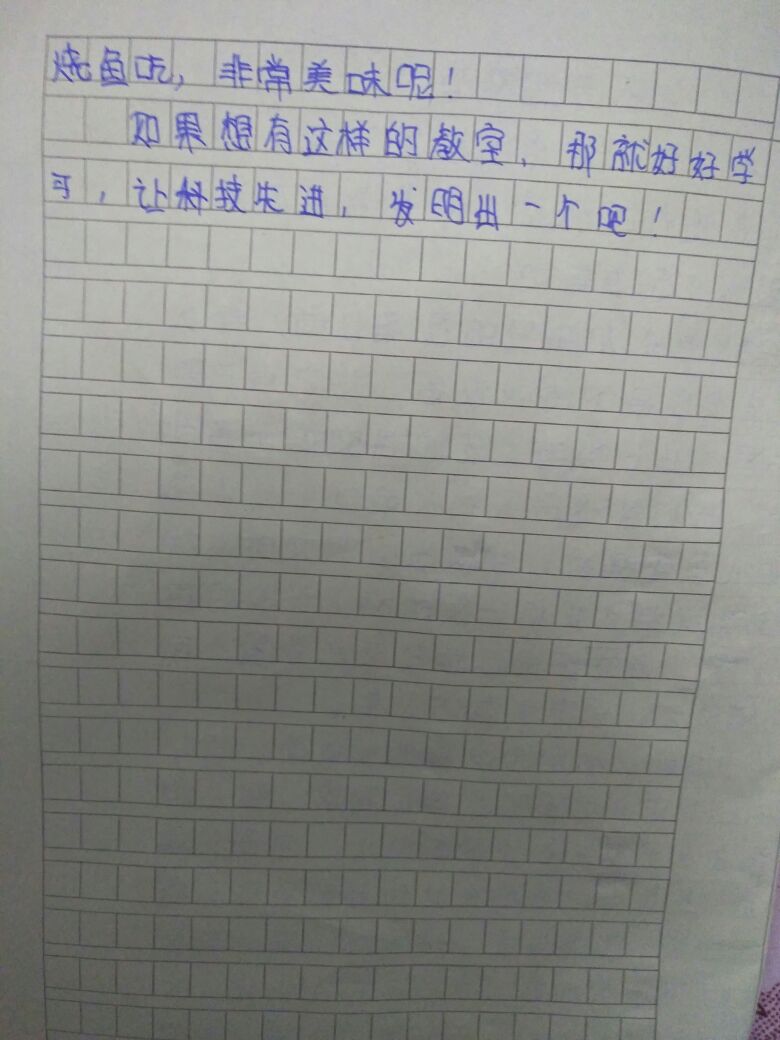 烧鱼吃，非常美味呢！
如果想有这样的教室，那就好好学
习，让科技先进，发明出一个吧！